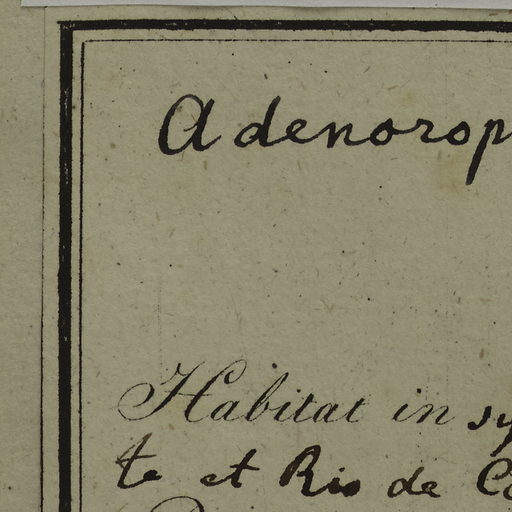 Adenorop
Habitat in sy
te et Rio de Co